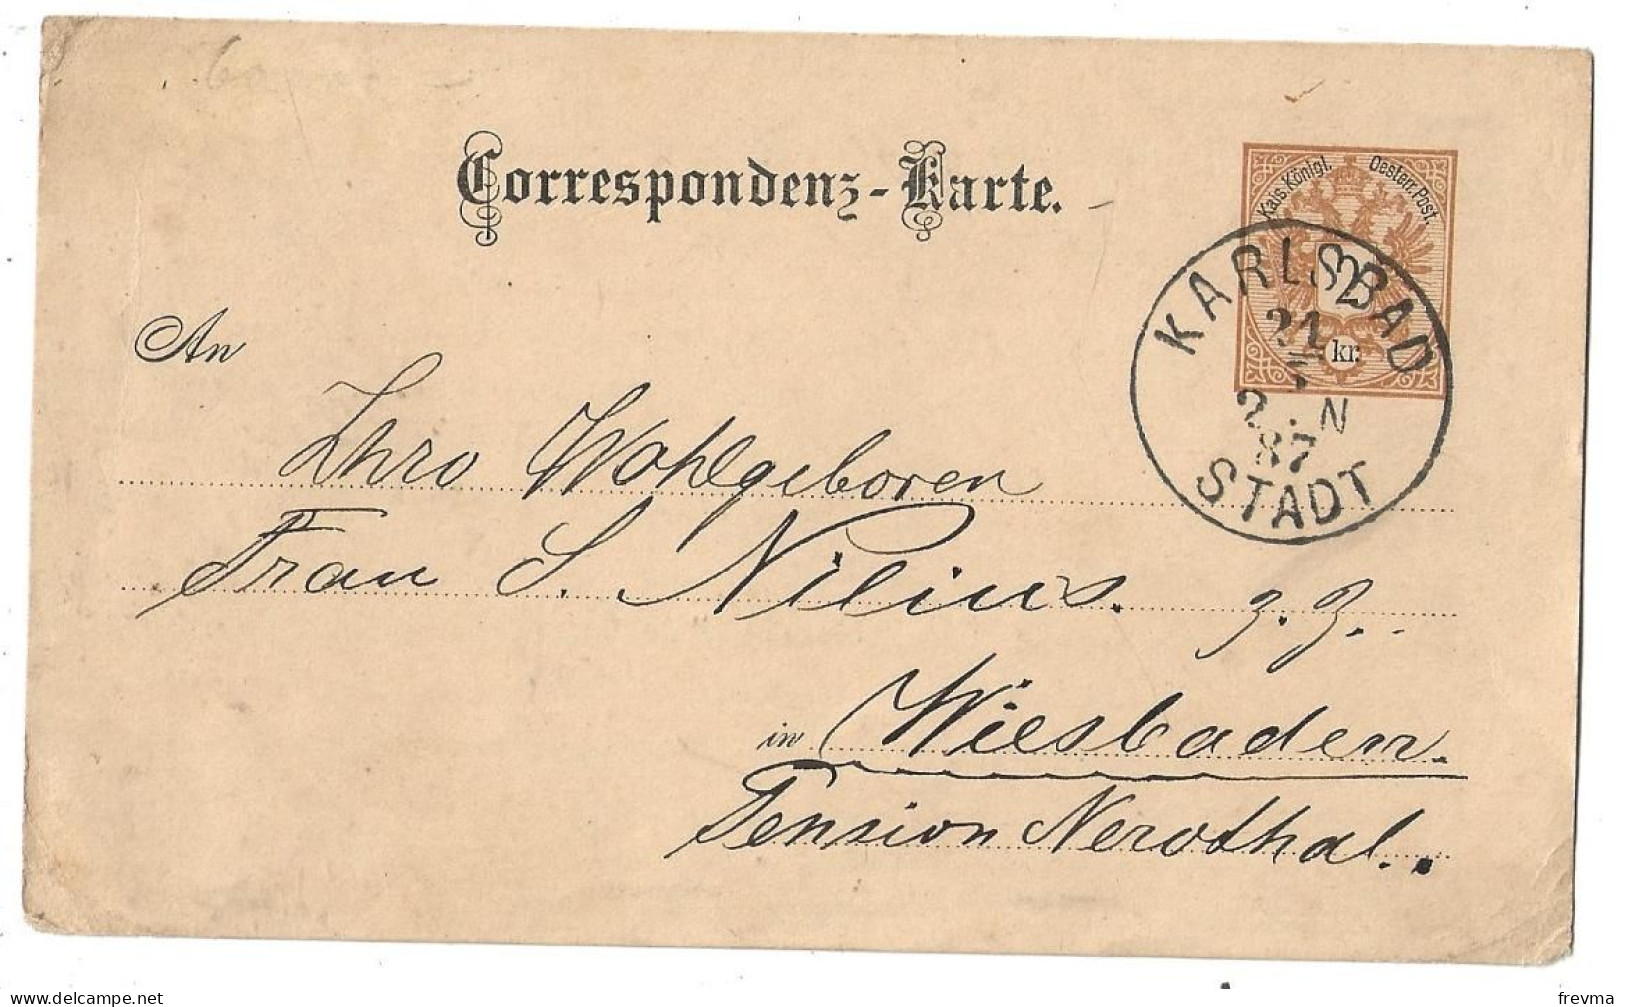 Correspondenz-Karte.
Kais. Königl. Oesterr. Post.
2
kr.
KARLSBAD
21
2. N
87
STADT
An
Ihro Wohlgeboren
Frau S. Nilius. z. Z.
in Wiesbaden.
Pension Nerothal.
frevma